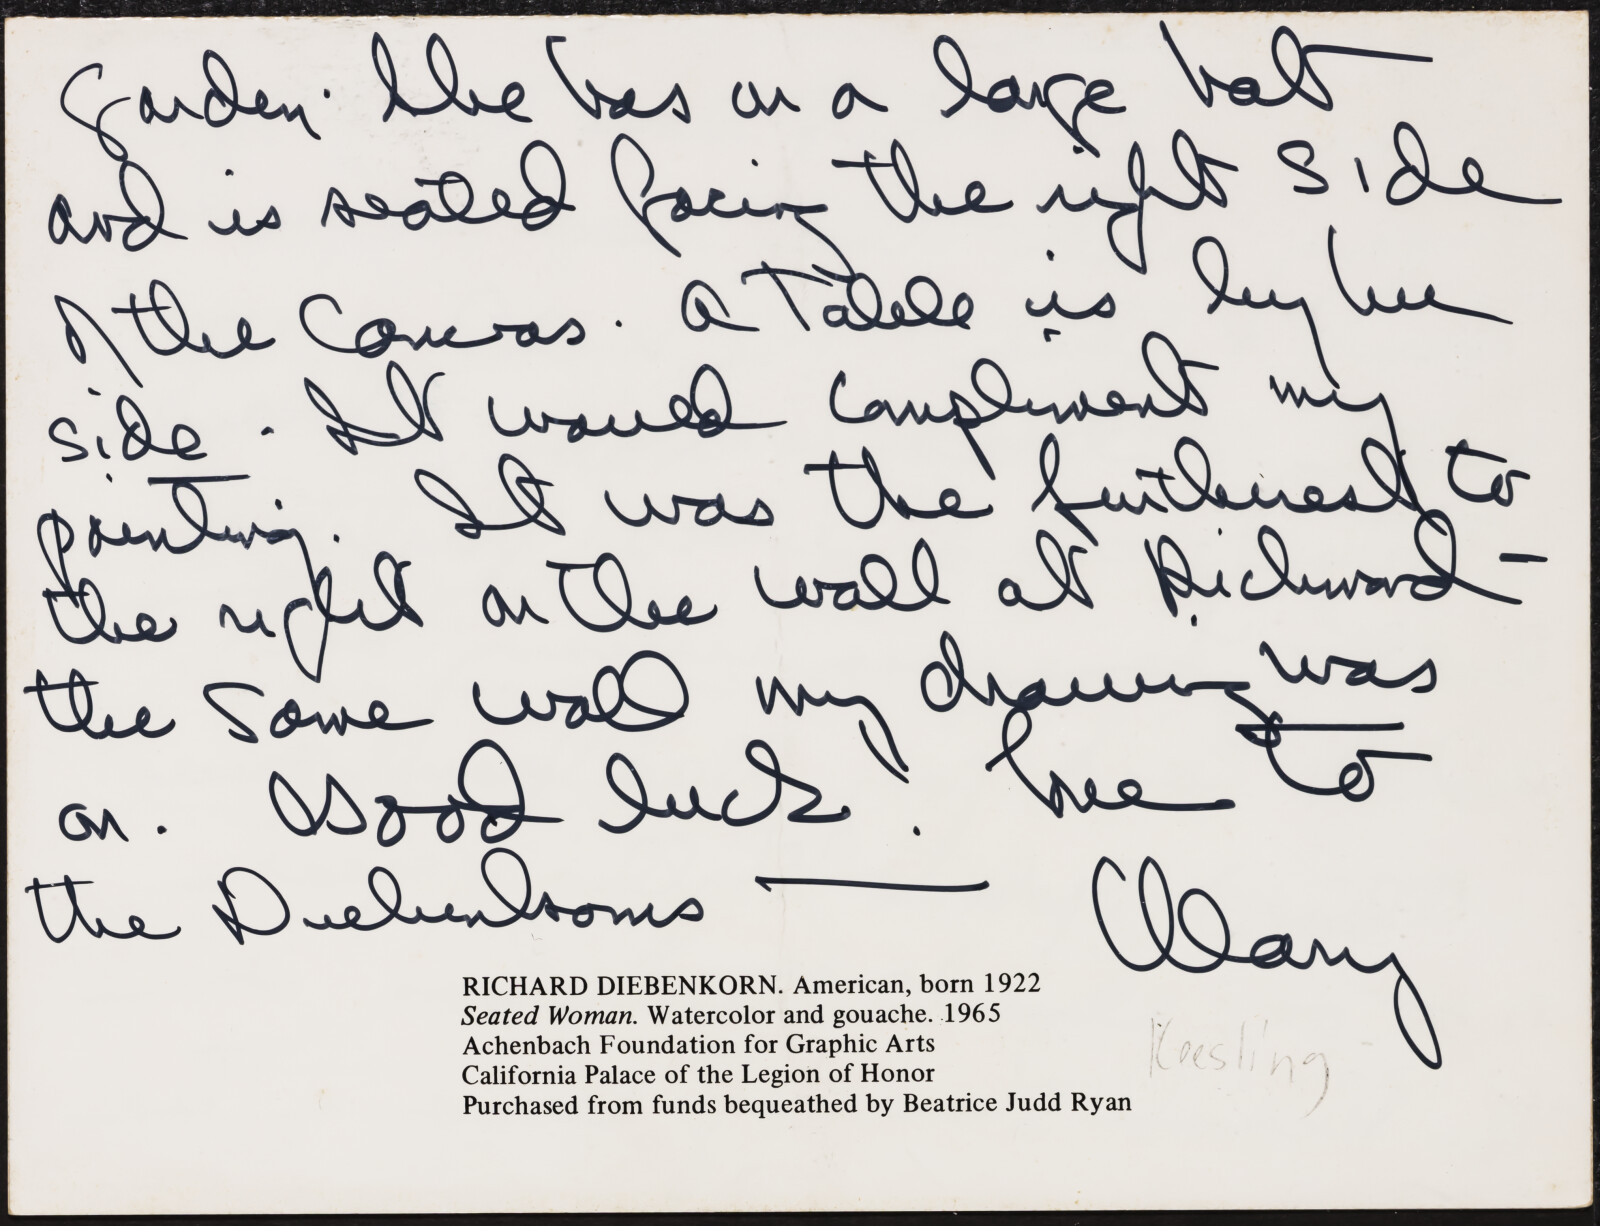 garden. She was in a large hat
and is seated facing the right side
of the canvas. A table is by her
side. It would compliment my
painting. It was the furtherest to
the right on the wall at Richmond –
the same wall my drawing was
on. Good luck. Love to
the Diebenkorns —— Mary
RICHARD DIEBENKORN. American, born 1922
Seated Woman. Watercolor and gouache. 1965
Achenbach Foundation for Graphic Arts
California Palace of the Legion of Honor
Keesling
Purchased from funds bequeathed by Beatrice Judd Ryan